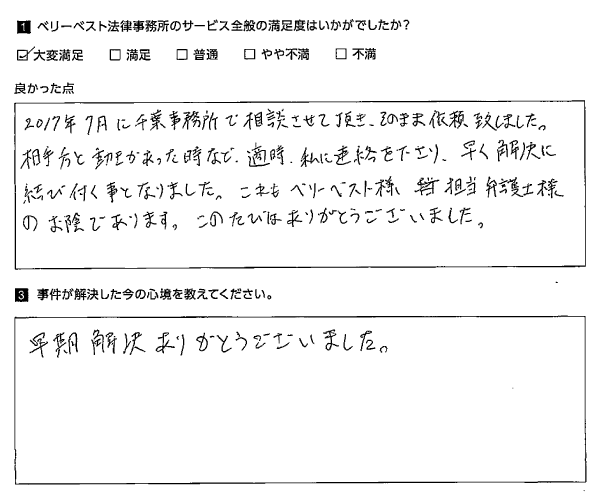 1 ベリーベスト法律事務所のサービス全般の満足度はいかがでしたか?
☑大変満足 □ 満足 □ 普通 □ やや不満 □ 不満
良かった点
2017年7月に千葉事務所で相談させて頂き、そのまま依頼致しました。
相手方と動きがあった時など、適時、私に連絡を下さり、早く解決に
結び付く事となりました。これもベリーベスト様、担当弁護士様
のお陰であります。このたびはありがとうございました。
3 事件が解決した今の心境を教えてください。
早期解決ありがとうございました。